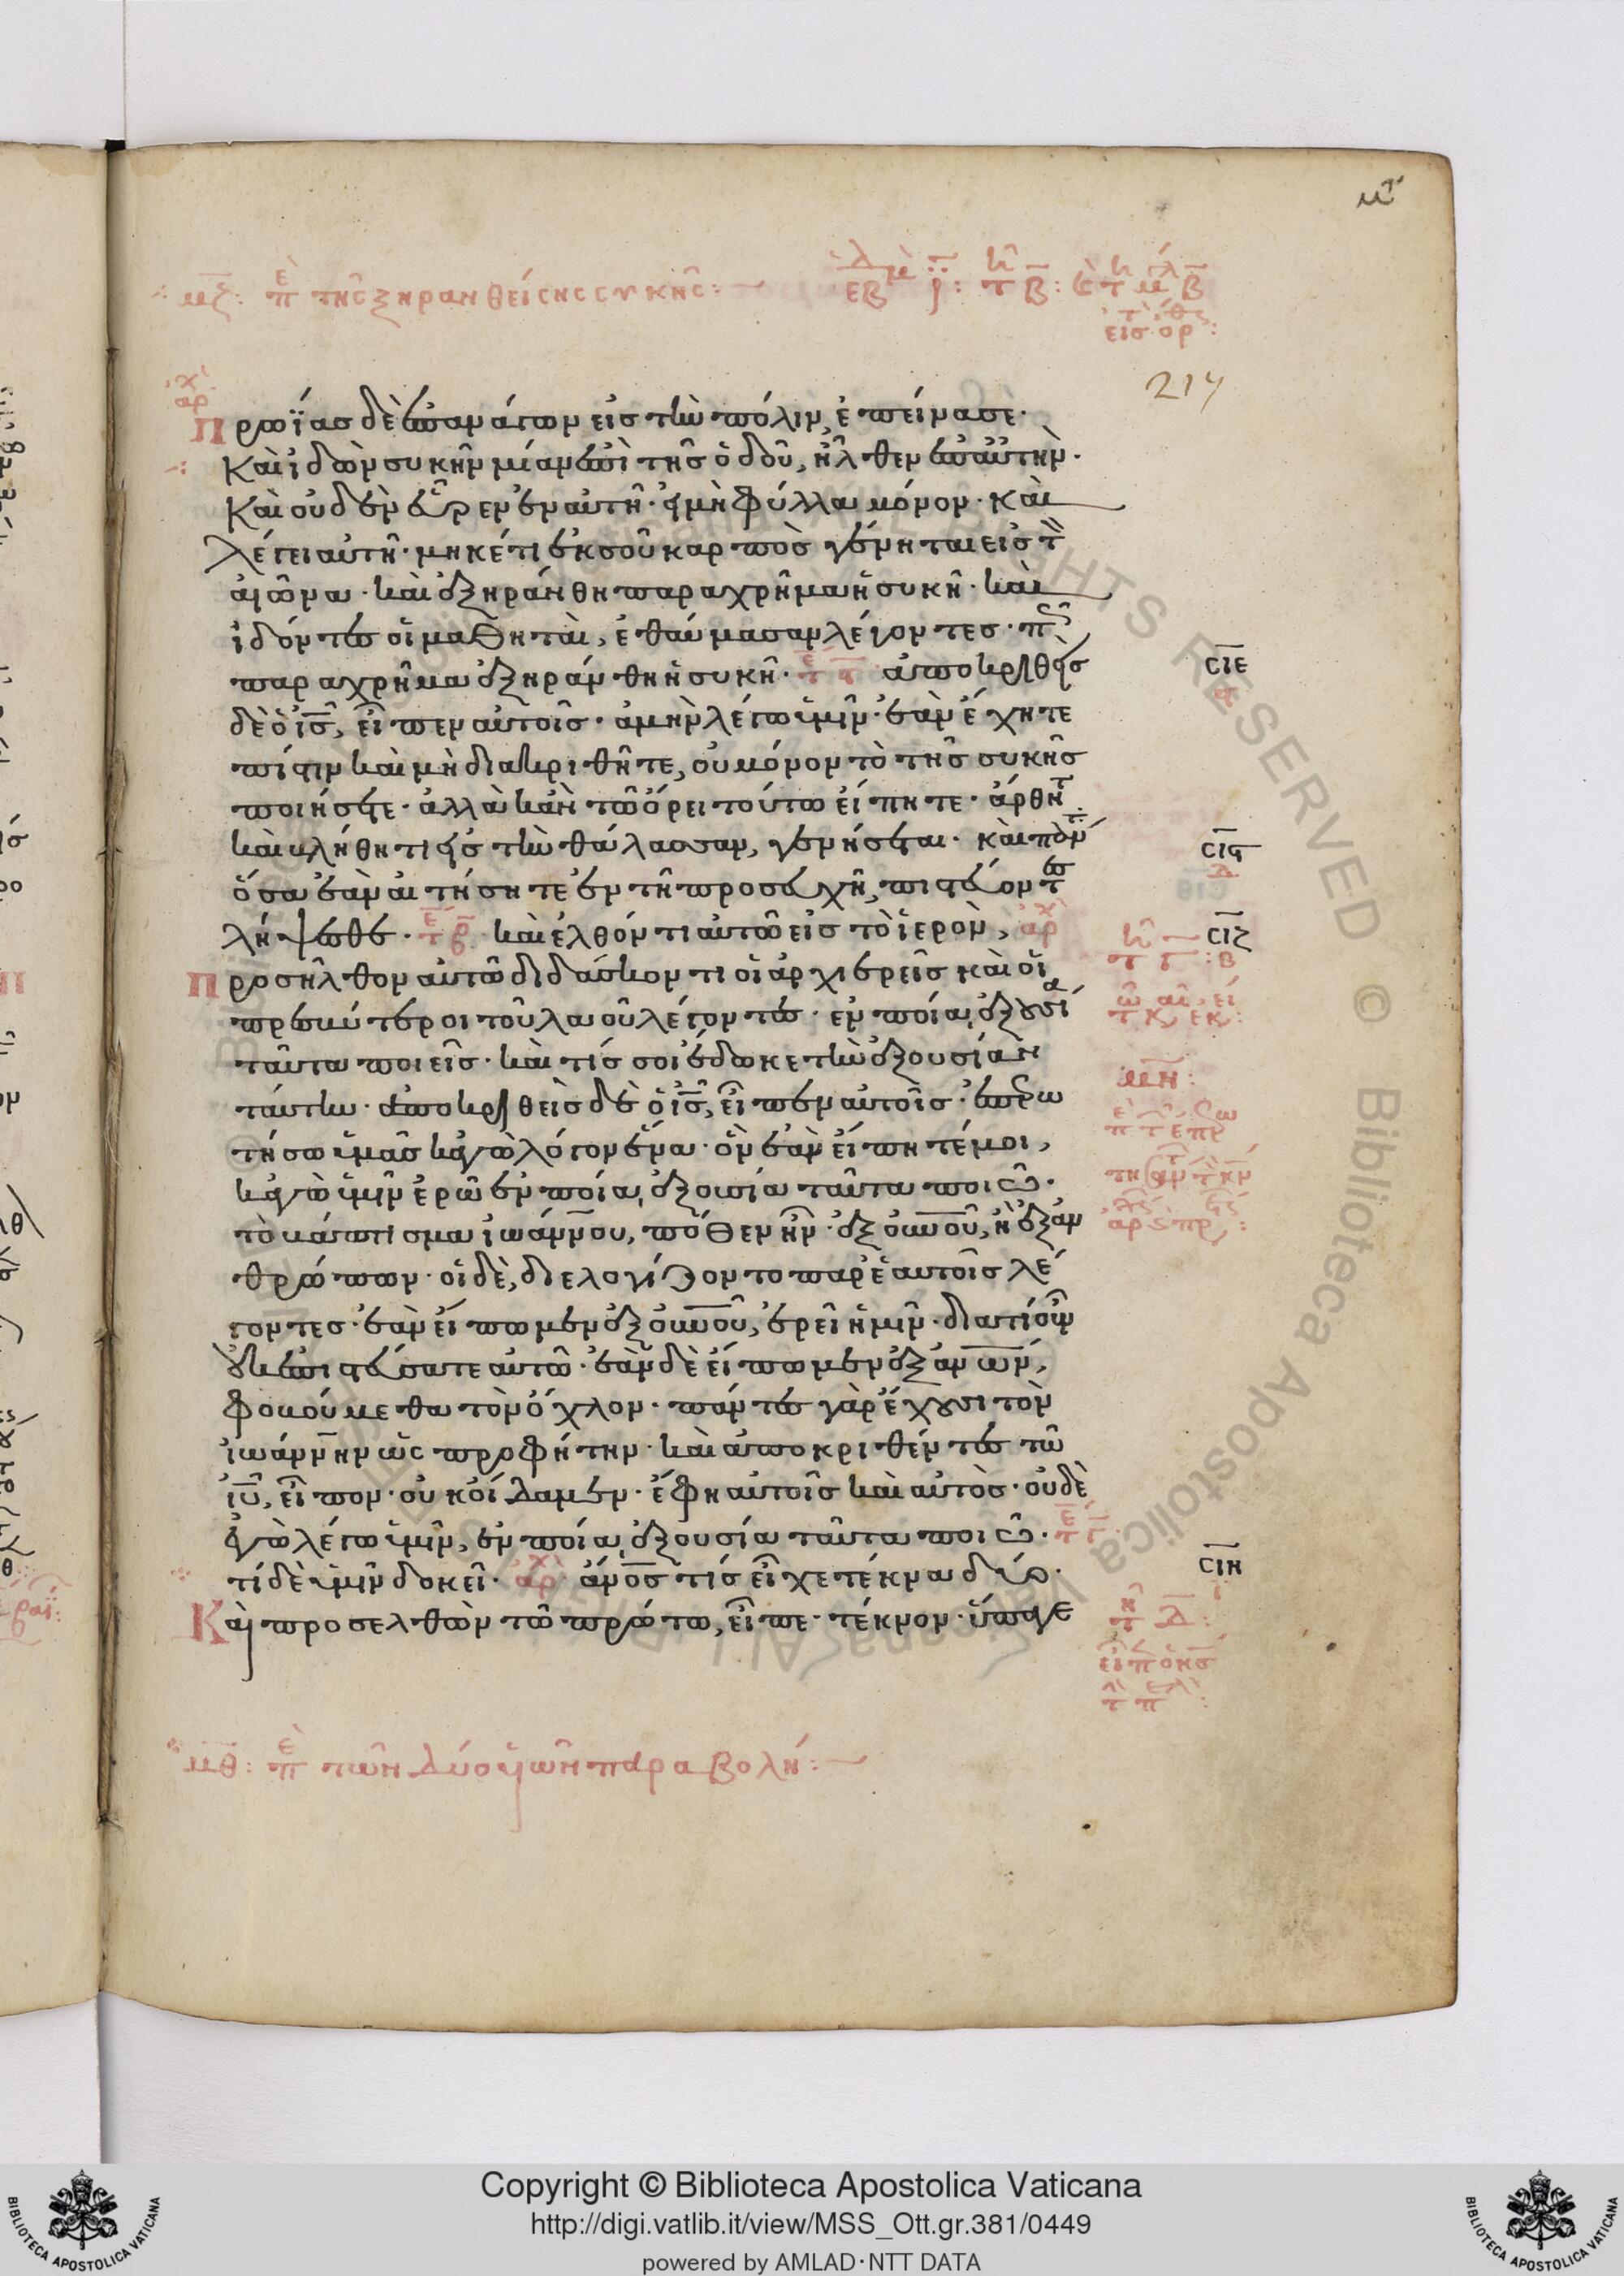 μζ: περι της ξηρανθείσης συκῆς:
214
Πρωΐας δὲ ἐπανάγων εἰς τὴν πόλιν, ἐπείνασε·
Καὶ ἰδὼν συκῆν μίαν ἐπὶ τῆς ὁδοῦ, ἦλθεν ἐπ' αὐτὴν·
Καὶ οὐδὲν εὗρεν ἐν αὐτῇ· εἰ μὴ φύλλα μόνον· καὶ
λέγει αὐτῇ· μηκέτι ἐκ σοῦ καρπὸς γένηται εἰς τ
αἰῶνα· καὶ ἐξηράνθη παραχρῆμα ἡ συκῆ· καὶ
ἰδόντες οἱ μαθηταὶ, ἐθαύμασαν λέγοντες· π
παραχρῆμα ἐξηράνθη ἡ συκῆ· ἀποκριθεὶς
δὲ ὁ ις, εἶπεν αὐτοῖς· ἀμὴν λέγω ὑμῖν· ἐὰν ἔχητε
πίστιν καὶ μὴ διακριθῆτε, οὐ μόνον τὸ τῆς συκῆς
ποιήσετε· ἀλλὰ κἂν τῶ ὄρει τούτω εἴπητε· ἄρθητ
καὶ βλήθητι εἰς τὴν θάλασσαν, γενήσεται· καὶ πάν
ὅσα ἐὰν αἰτήσητε ἐν τῇ προσευχῇ, πιστεύοντες
λήψεσθε· καὶ ἐλθόντι αὐτῶ εἰς τὸ ἱερὸν,
Προσῆλθον αὐτῶ διδάσκοντι οἱ ἀρχιερεῖς καὶ οἱ
πρεσβύτεροι τοῦ λαοῦ λέγοντες· ἐν ποία ἐξουσία
ταῦτα ποιεῖς· καὶ τίς σοι ἔδωκε τὴν ἐξουσίαν
ταύτην· ἀποκριθεὶς δὲ ὁ ις, εἶπεν αὐτοῖς· ἐπερω
τήσω ὑμᾶς κἀγὼ λόγον ἕνα· ὃν ἐὰν εἴπητέ μοι,
κἀγὼ ὑμῖν ἐρῶ ἐν ποία ἐξουσία ταῦτα ποιῶ·
τὸ βάπτισμα ἰωάννου, πόθεν ἦν· ἐξ ουνου, ἢ ἐξ ἀν
θρώπων· οἱ δὲ, διελογίζοντο παρ' ἑαυτοῖς λέ
γοντες· ἐὰν εἴπωμεν ἐξ ουνου, ἐρεῖ ἡμῖν· διατί οὖν
οὐκ ἐπιστεύσατε αὐτῶ· ἐὰν δὲ εἴπωμεν ἐξ ανων,
φοβούμεθα τὸν ὄχλον· πάντες γὰρ ἔχουσι τὸν
ἰωάννην ὡς προφήτην· καὶ ἀποκριθέντες τῶ
ιυ, εἶπον· οὐκ οἴδαμεν· ἔφη αὐτοῖς καὶ αὐτὸς· οὐδὲ
ἐγὼ λέγω ὑμῖν, ἐν ποία ἐξουσία ταῦτα ποιῶ·
τί δὲ ὑμῖν δοκεῖ· ανος τίς εἶχε τέκνα δύο·
Καὶ προσελθὼν τῶ πρώτω, εἶπε· τέκνον· ὕπαγε
σιε
σις
σιζ
μη:
σιη
μθ: περι τῶν δύο υἱῶν παραβολή:
ALL RIGHTS RESERVED © Biblioteca Apostolica Vaticana
Copyright © Biblioteca Apostolica Vaticana
http://digi.vatlib.it/view/MSS_Ott.gr.381/0449
powered by AMLAD·NTT DATA
BIBLIOTECA APOSTOLICA VATICANA
BIBLIOTECA APOSTOLICA VATICANA